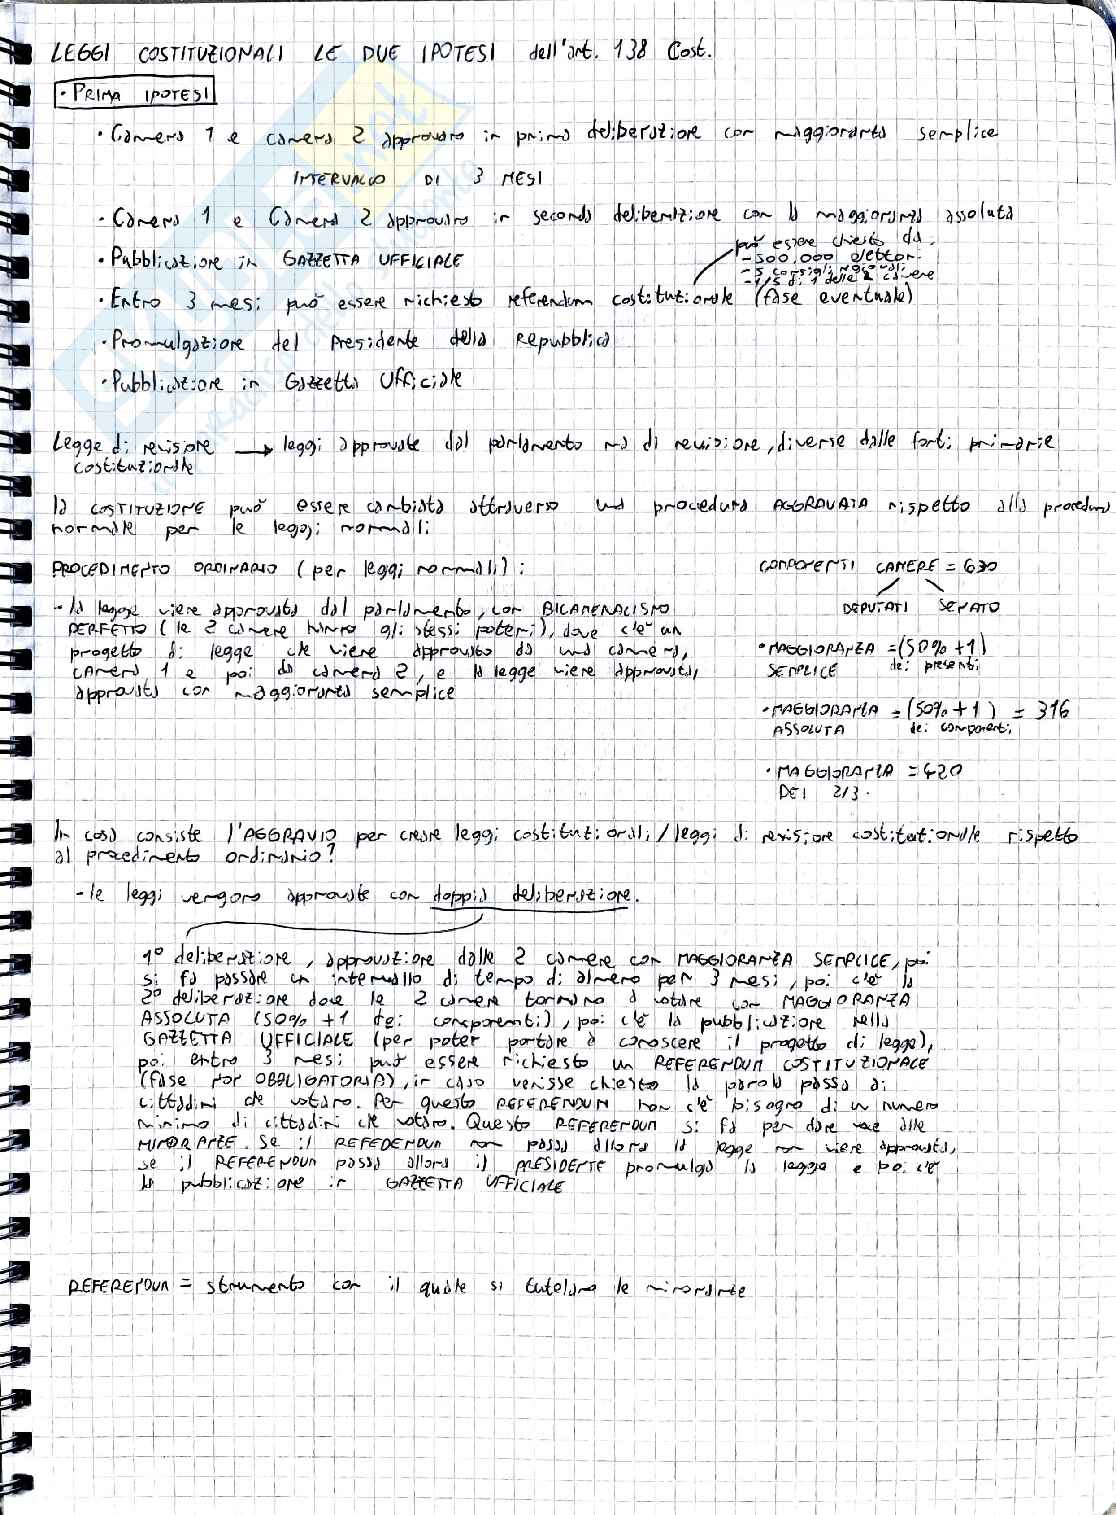 LEGGI COSTITUZIONALI LE DUE IPOTESI dell'art. 138 Cost.
• PRIMA IPOTESI
• Camera 1 e camera 2 approvano in prima deliberazione con maggioranza semplice
INTERVALLO DI 3 MESI
• Camera 1 e Camera 2 approvano in seconda deliberazione con la maggioranza assoluta
può essere chiesto da:
- 500.000 elettori
- 5 consigli regionali
- 1/5 di 1 delle 2 camere
• Pubblicazione in GAZZETTA UFFICIALE
• Entro 3 mesi può essere richiesto referendum costituzionale (fase eventuale)
• Promulgazione del Presidente della Repubblica
• Pubblicazione in Gazzetta Ufficiale
Legge di revisione → leggi approvate dal parlamento ma di revisione, diverse dalle fonti primarie
costituzionale
la COSTITUZIONE può essere cambiata attraverso una procedura AGGRAVATA rispetto alla procedura
normale per le leggi normali
PROCEDIMENTO ORDINARIO (per leggi normali):
- la legge viene approvata dal parlamento, con BICAMERALISMO
PERFETTO (le 2 camere hanno gli stessi poteri), dove c'è un
progetto di legge che viene approvato da una camera,
CAMERA 1 e poi da camera 2, e la legge viene approvata,
approvata con maggioranza semplice
COMPONENTI CAMERE = 630
DEPUTATI SENATO
• MAGGIORANZA = (50% + 1)
SEMPLICE dei presenti
• MAGGIORANZA = (50% + 1) = 316
ASSOLUTA dei componenti
• MAGGIORANZA = 420
DEI 2/3.
In cosa consiste l'AGGRAVIO per creare leggi costituzionali/leggi di revisione costituzionale rispetto
al procedimento ordinario?
- le leggi vengono approvate con doppia deliberazione.
1° deliberazione, approvazione dalle 2 camere con MAGGIORANZA SEMPLICE, poi
si fa passare un intervallo di tempo di almeno per 3 mesi, poi c'è la
2° deliberazione dove le 2 camere tornano a votare con MAGGIORANZA
ASSOLUTA (50% + 1 dei componenti), poi c'è la pubblicazione nella
GAZZETTA UFFICIALE (per poter portare a conoscere il progetto di legge),
poi entro 3 mesi può essere richiesto un REFERENDUM COSTITUZIONALE
(fase non OBBLIGATORIA), in caso venisse chiesto la parola passa ai
cittadini che votano. Per questo REFERENDUM non c'è bisogno di un numero
minimo di cittadini che votano. Questo REFERENDUM si fa per dare voce alle
MINORANZE. Se il REFEDENDUM non passa allora la legge non viene approvata,
se il REFERENDUM passa allora il PRESIDENTE promulga la legge e poi c'è
la pubblicazione in GAZZETTA UFFICIALE
REFERENDUM = strumento con il quale si tutelano le minoranze